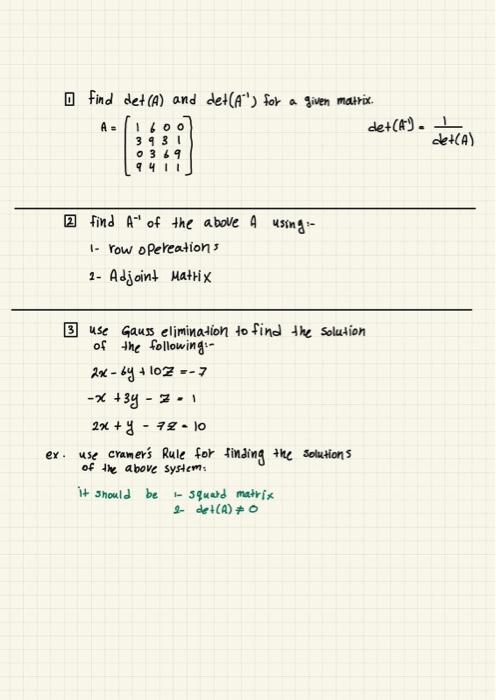 1 find det(A) and det(A⁻¹) for a given matrix.
A = [ 1 6 0 0
3 9 3 1
0 3 6 9
9 4 1 1 ]
det(A⁻¹) = 1/det(A)
2 find A⁻¹ of the above A using:-
1- row opereations
2- Adjoint Matrix
3 use Gauss elimination to find the solution
of the following:-
2x - 6y + 10z = -7
-x + 3y - z = 1
2x + y - 7z = 10
ex. use cramer's Rule for finding the solutions
of the above system:
it should be 1- squard matrix
2- det(A) ≠ 0